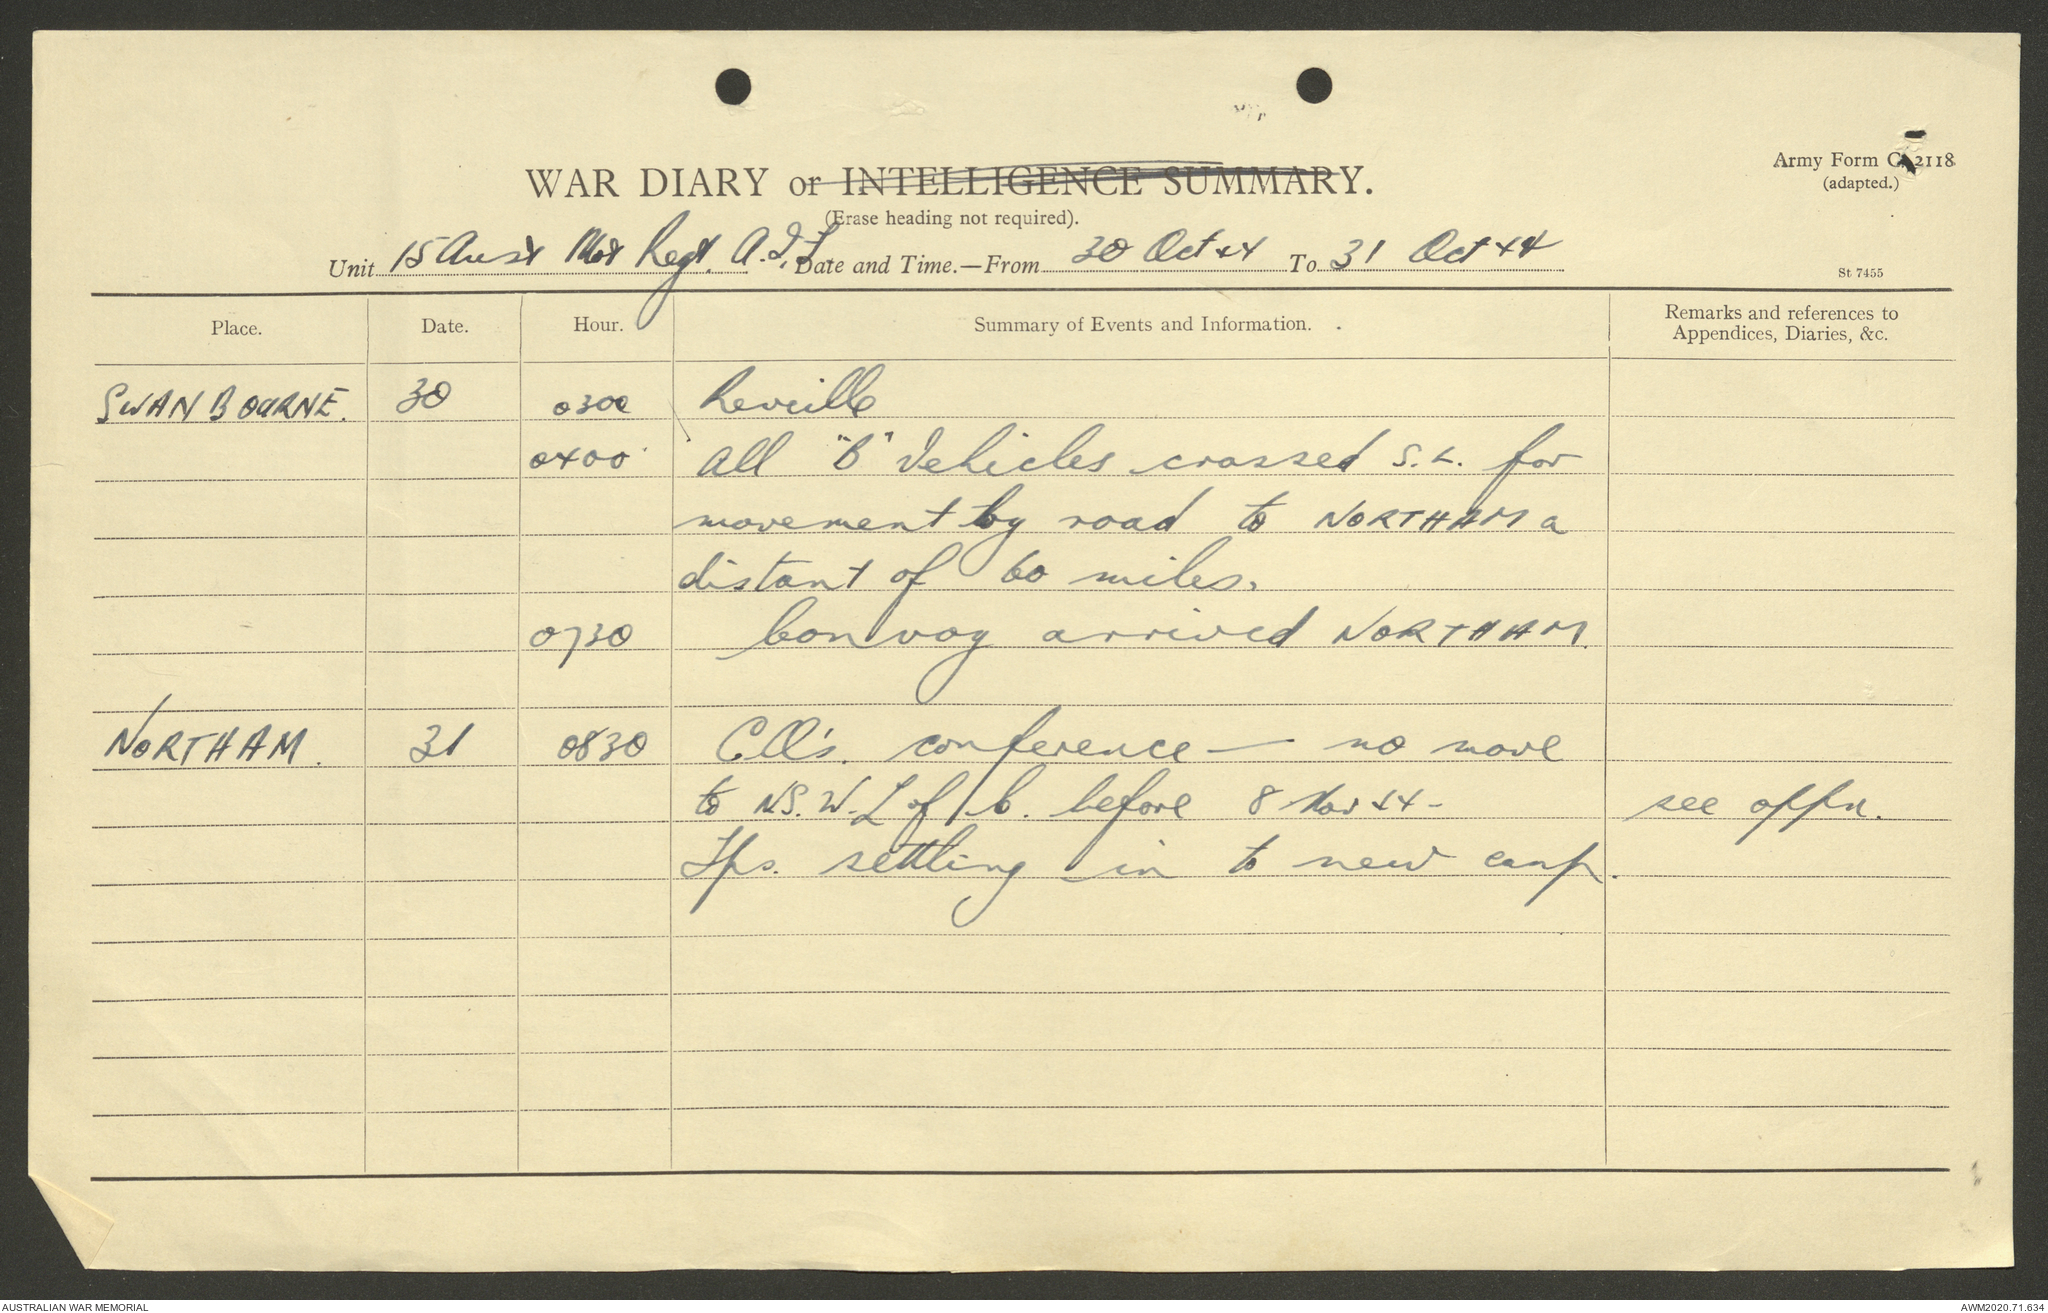 Army Form C. 2118
(adapted.)
WAR DIARY or INTELLIGENCE SUMMARY.
(Erase heading not required).
Unit 15 Aust Mot Regt. A.I.F. Date and Time.—From 30 Oct 44 To 31 Oct 44
St 7455
Place. Date. Hour. Summary of Events and Information. Remarks and references to
Appendices, Diaries, &c.
SWANBOURNE. 30 0300 Reveille
0400 All "B" Vehicles crossed S.L. for
movement by road to NORTHAM a
distant of 60 miles.
0730 Convoy arrived NORTHAM.
NORTHAM. 31 0830 CO's. conference — no move
to N.S.W. L of C. before 8 Nov 44 - see appx.
Tps. settling in to new camp.
AUSTRALIAN WAR MEMORIAL AWM2020.71.634